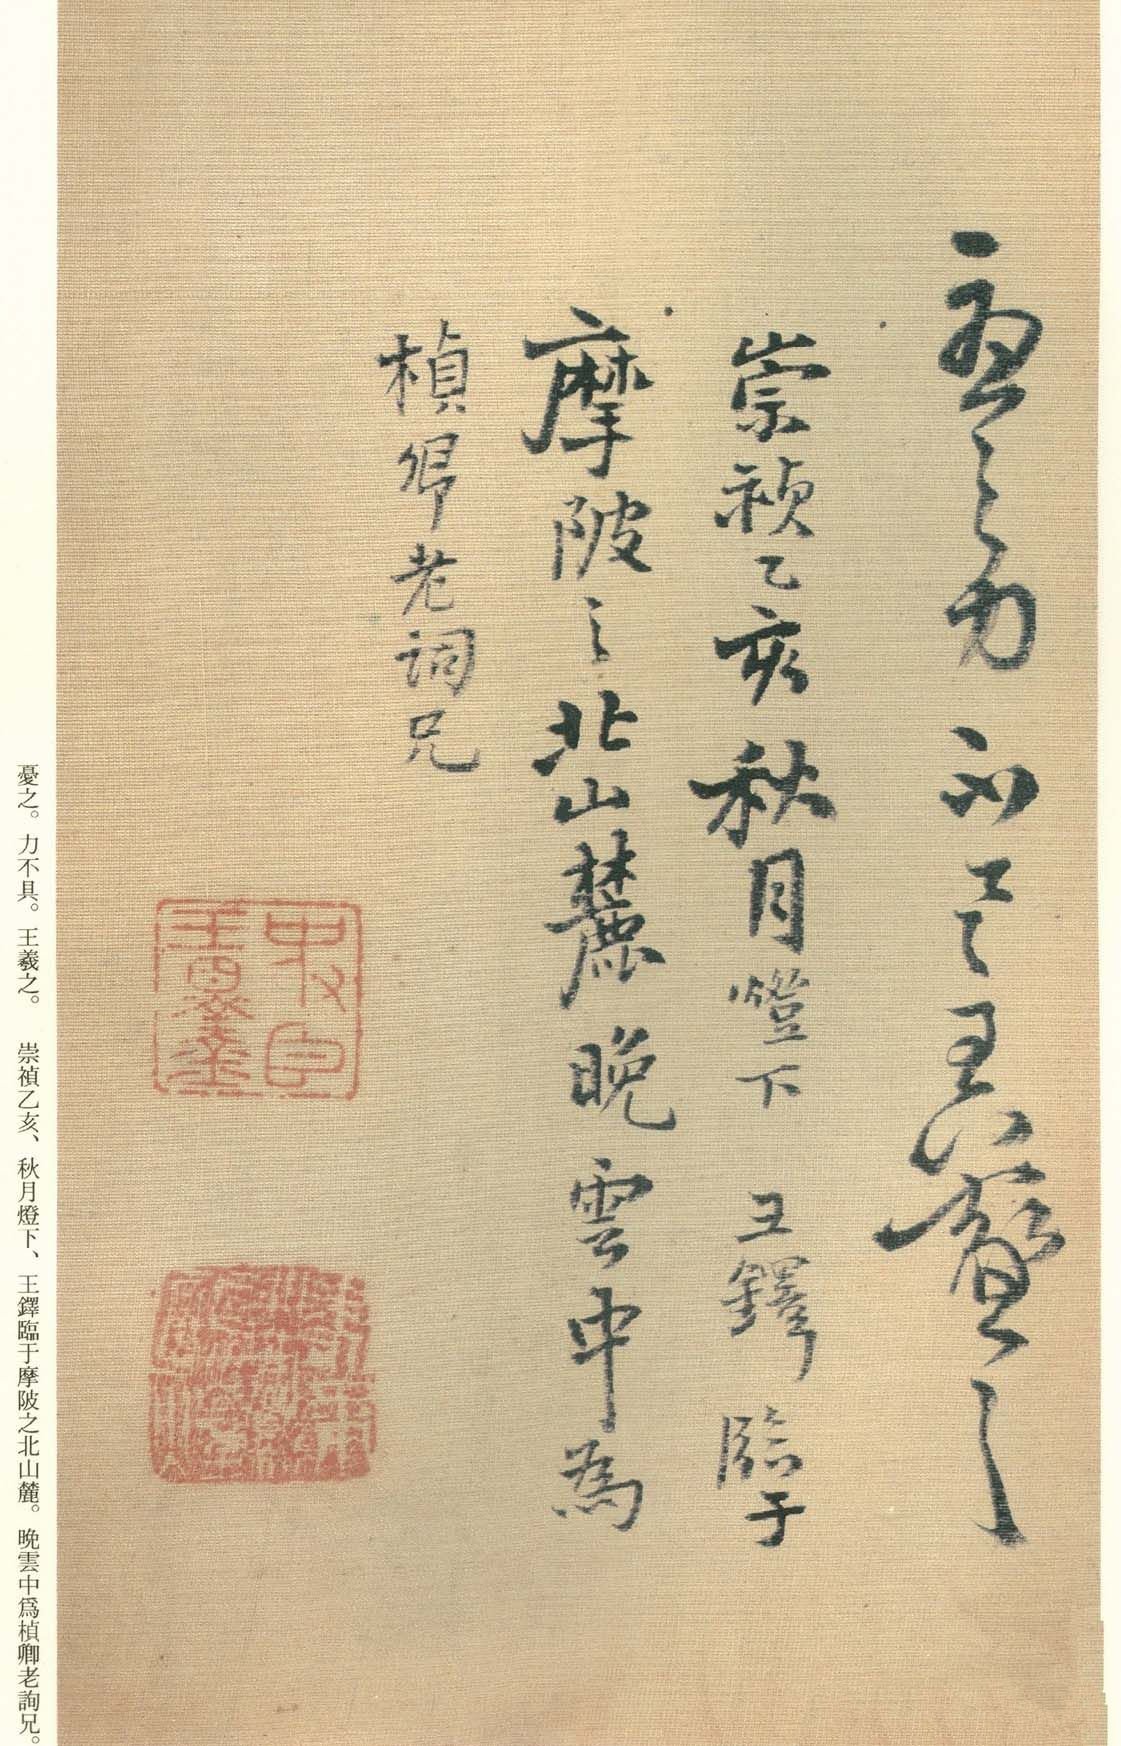 憂之力不具王羲之
崇禎乙亥秋月燈下王鐸臨于
摩陂之北山麓晚雲中為
楨卿老詞兄
憂之。力不具。王羲之。 崇禎乙亥、秋月燈下、王鐸臨于摩陂之北山麓。晚雲中爲楨卿老詢兄。